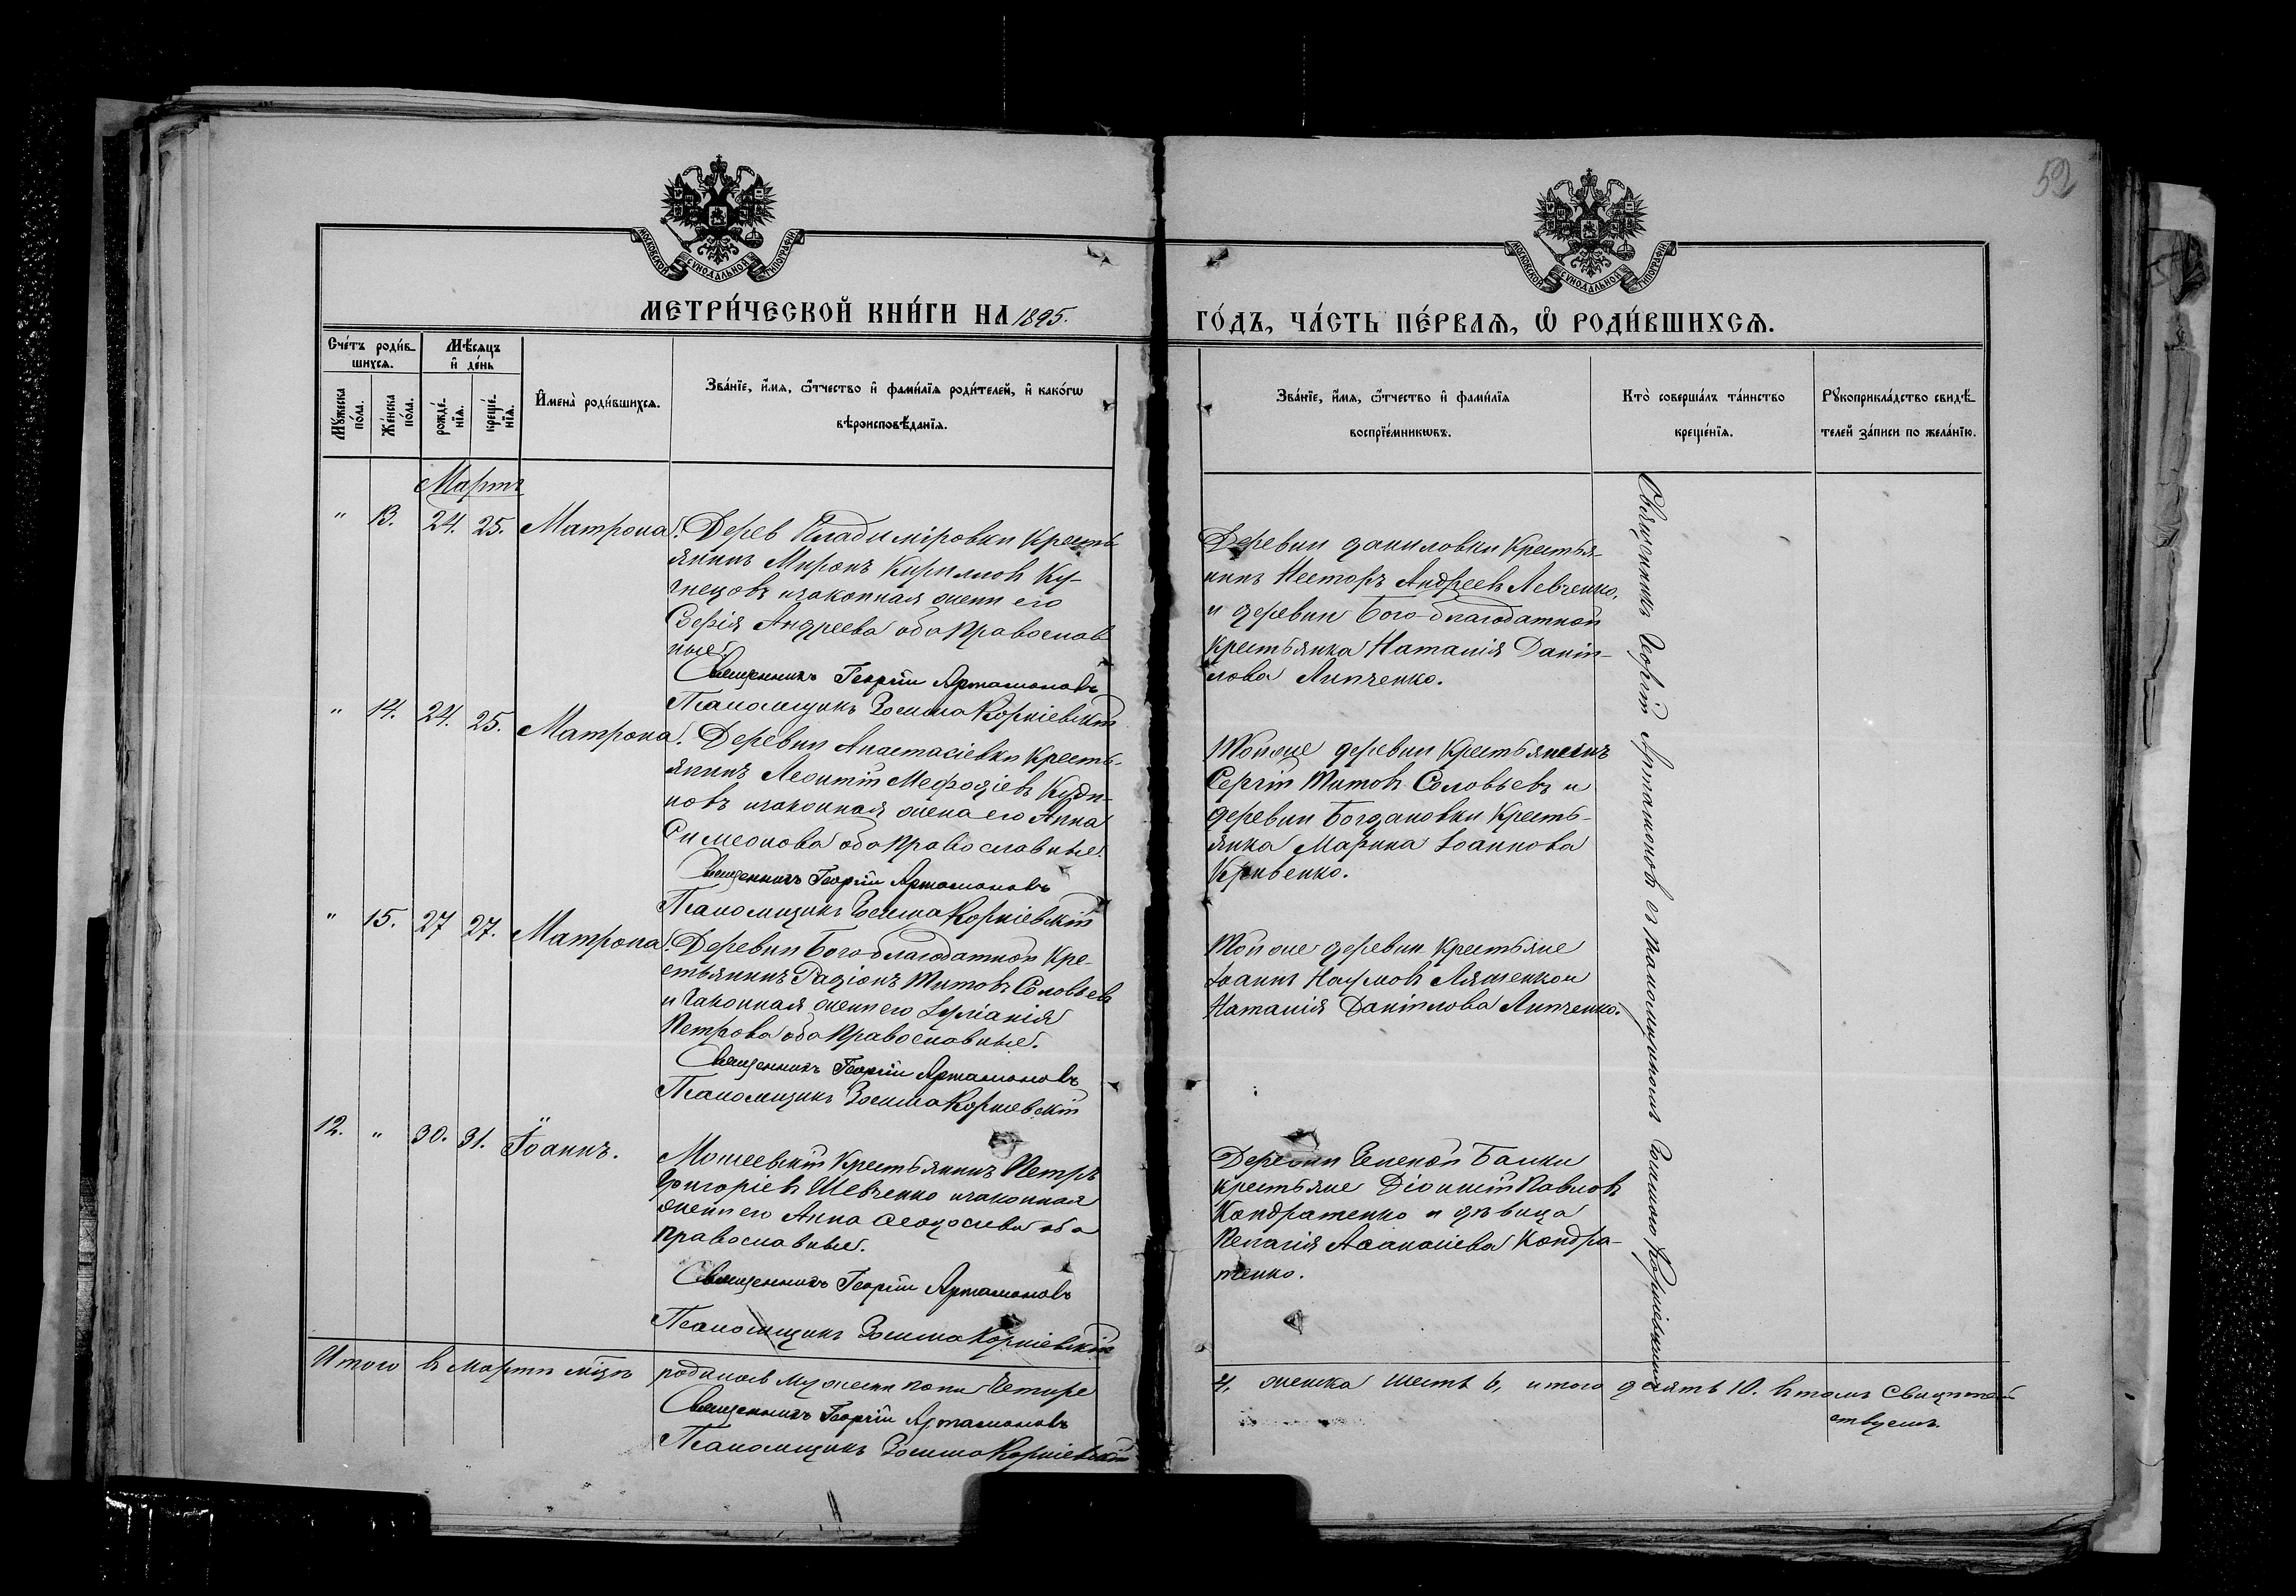 52
МОСКОВСКОЙ СУНОДАЛЬНОЙ ТИПОГРАФІИ
МОСКОВСКОЙ СУНОДАЛЬНОЙ ТИПОГРАФІИ
МЕТРИ́ЧЕСКОЙ КНИ́ГИ НА 1895.
ГО́ДЪ, ЧА́СТЬ ПЕ́РВАѦ, Ѡ҆ РОДИ́ВШИХСѦ.
Сче́тъ роди́в-
шихсѧ.
Мѣ́сѧцъ
и҆ де́нь
Мꙋ́жеска
по́ла.
Же́нска
по́ла.
рожде́-
нїѧ.
креще́-
нїѧ.
И҆мена̀ роди́вшихсѧ.
Зва́нїе, и҆́мѧ, ѻ҆́тчество и҆ фами́лїѧ роди́телей, и҆ како́гѡ
вѣроисповѣ́данїѧ.
Зва́нїе, и҆́мѧ, ѻ҆́тчество и҆ фами́лїѧ
воспрїе́мникѡвъ.
Кто̀ соверша́лъ та́инство
креще́нїѧ.
Рꙋкоприкла́дство свидѣ́-
телей за́писи по жела́нїю.
Мартъ
" 13. 24. 25. Матрона.
Дерев Владиміровки Кресть
янинъ Миронъ Кириловъ Ку-
знецовъ изаконная жени его
Софія Андреева оба православ
ные.
Священникъ Георгій Артамоновъ
Псаломщикъ Зосима Корніевскій
Деревни Даниловки Крестья-
нинъ Несторъ Андреевъ Левченко,
и деревни Бого-благодатной
крестьянка Наталія Даніи-
лова Липченко.
" 14. 24. 25. Матрона.
Деревни Анастасіевки Кресть-
янинъ Леонтій Мефодіевъ Куди-
новъ изаконная жена его Анна
Симеонова оба православные.
Священникъ Георгій Артамоновъ
Псаломщикъ Зосима Корніевскій
Тойже деревни Крестьянинъ
Сергій Титовъ Соловьевъ и
деревни Богдановки Кресть-
янка Марина Іоаннова
Кривенко.
" 15. 27 27. Матрона.
Деревни Бого-благодатной Кре-
стьянинъ Радіонъ Титовъ Соловьев
и законная жени его Іуліанія
Петрова оба православные.
Священникъ Георгій Артамоновъ
Псаломщикъ Зосима Корніевскій
Той же деревни Крестьяне
Іоаннъ Наумовъ Ляшенко и
Наталія Даніилова Липченко.
12. " 30. 31. Іоаннъ.
Крестьянинъ Петръ
Григоріевъ Шевченко изаконная
жени его Анна Ѳеодосіева оба
православные.
Священникъ Георгій Артамоновъ
Псаломщикъ Зосима Корніевскій
Деревни Зеленой Балки
крестьяне Діонисій Павловъ
Кондратенко и дѣвица
Пелагія Аѳанасіева Кондра-
тенко.
Священникъ Георгій Артамоновъ съ псаломщикомъ Зосимою Корніевскимъ
Итого въ Мартѣ мѣцѣ родилось мужеска пола четыре
4, женска шесть 6, итого десять 10. Въ томъ свидѣтель
ствуемъ.
Священникъ Георгій Артамоновъ
Псаломщикъ Зосима Корніевскій